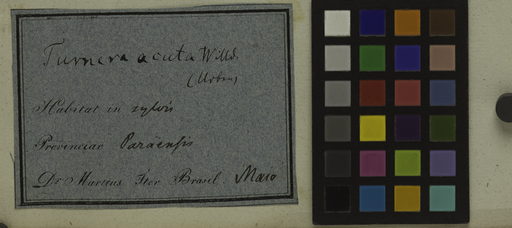 Turnera acuta Willd.
(Urban)
Habitat in sylvis
Provinciae Paraënsis
Dr. Martius Iter Brasil. Maio